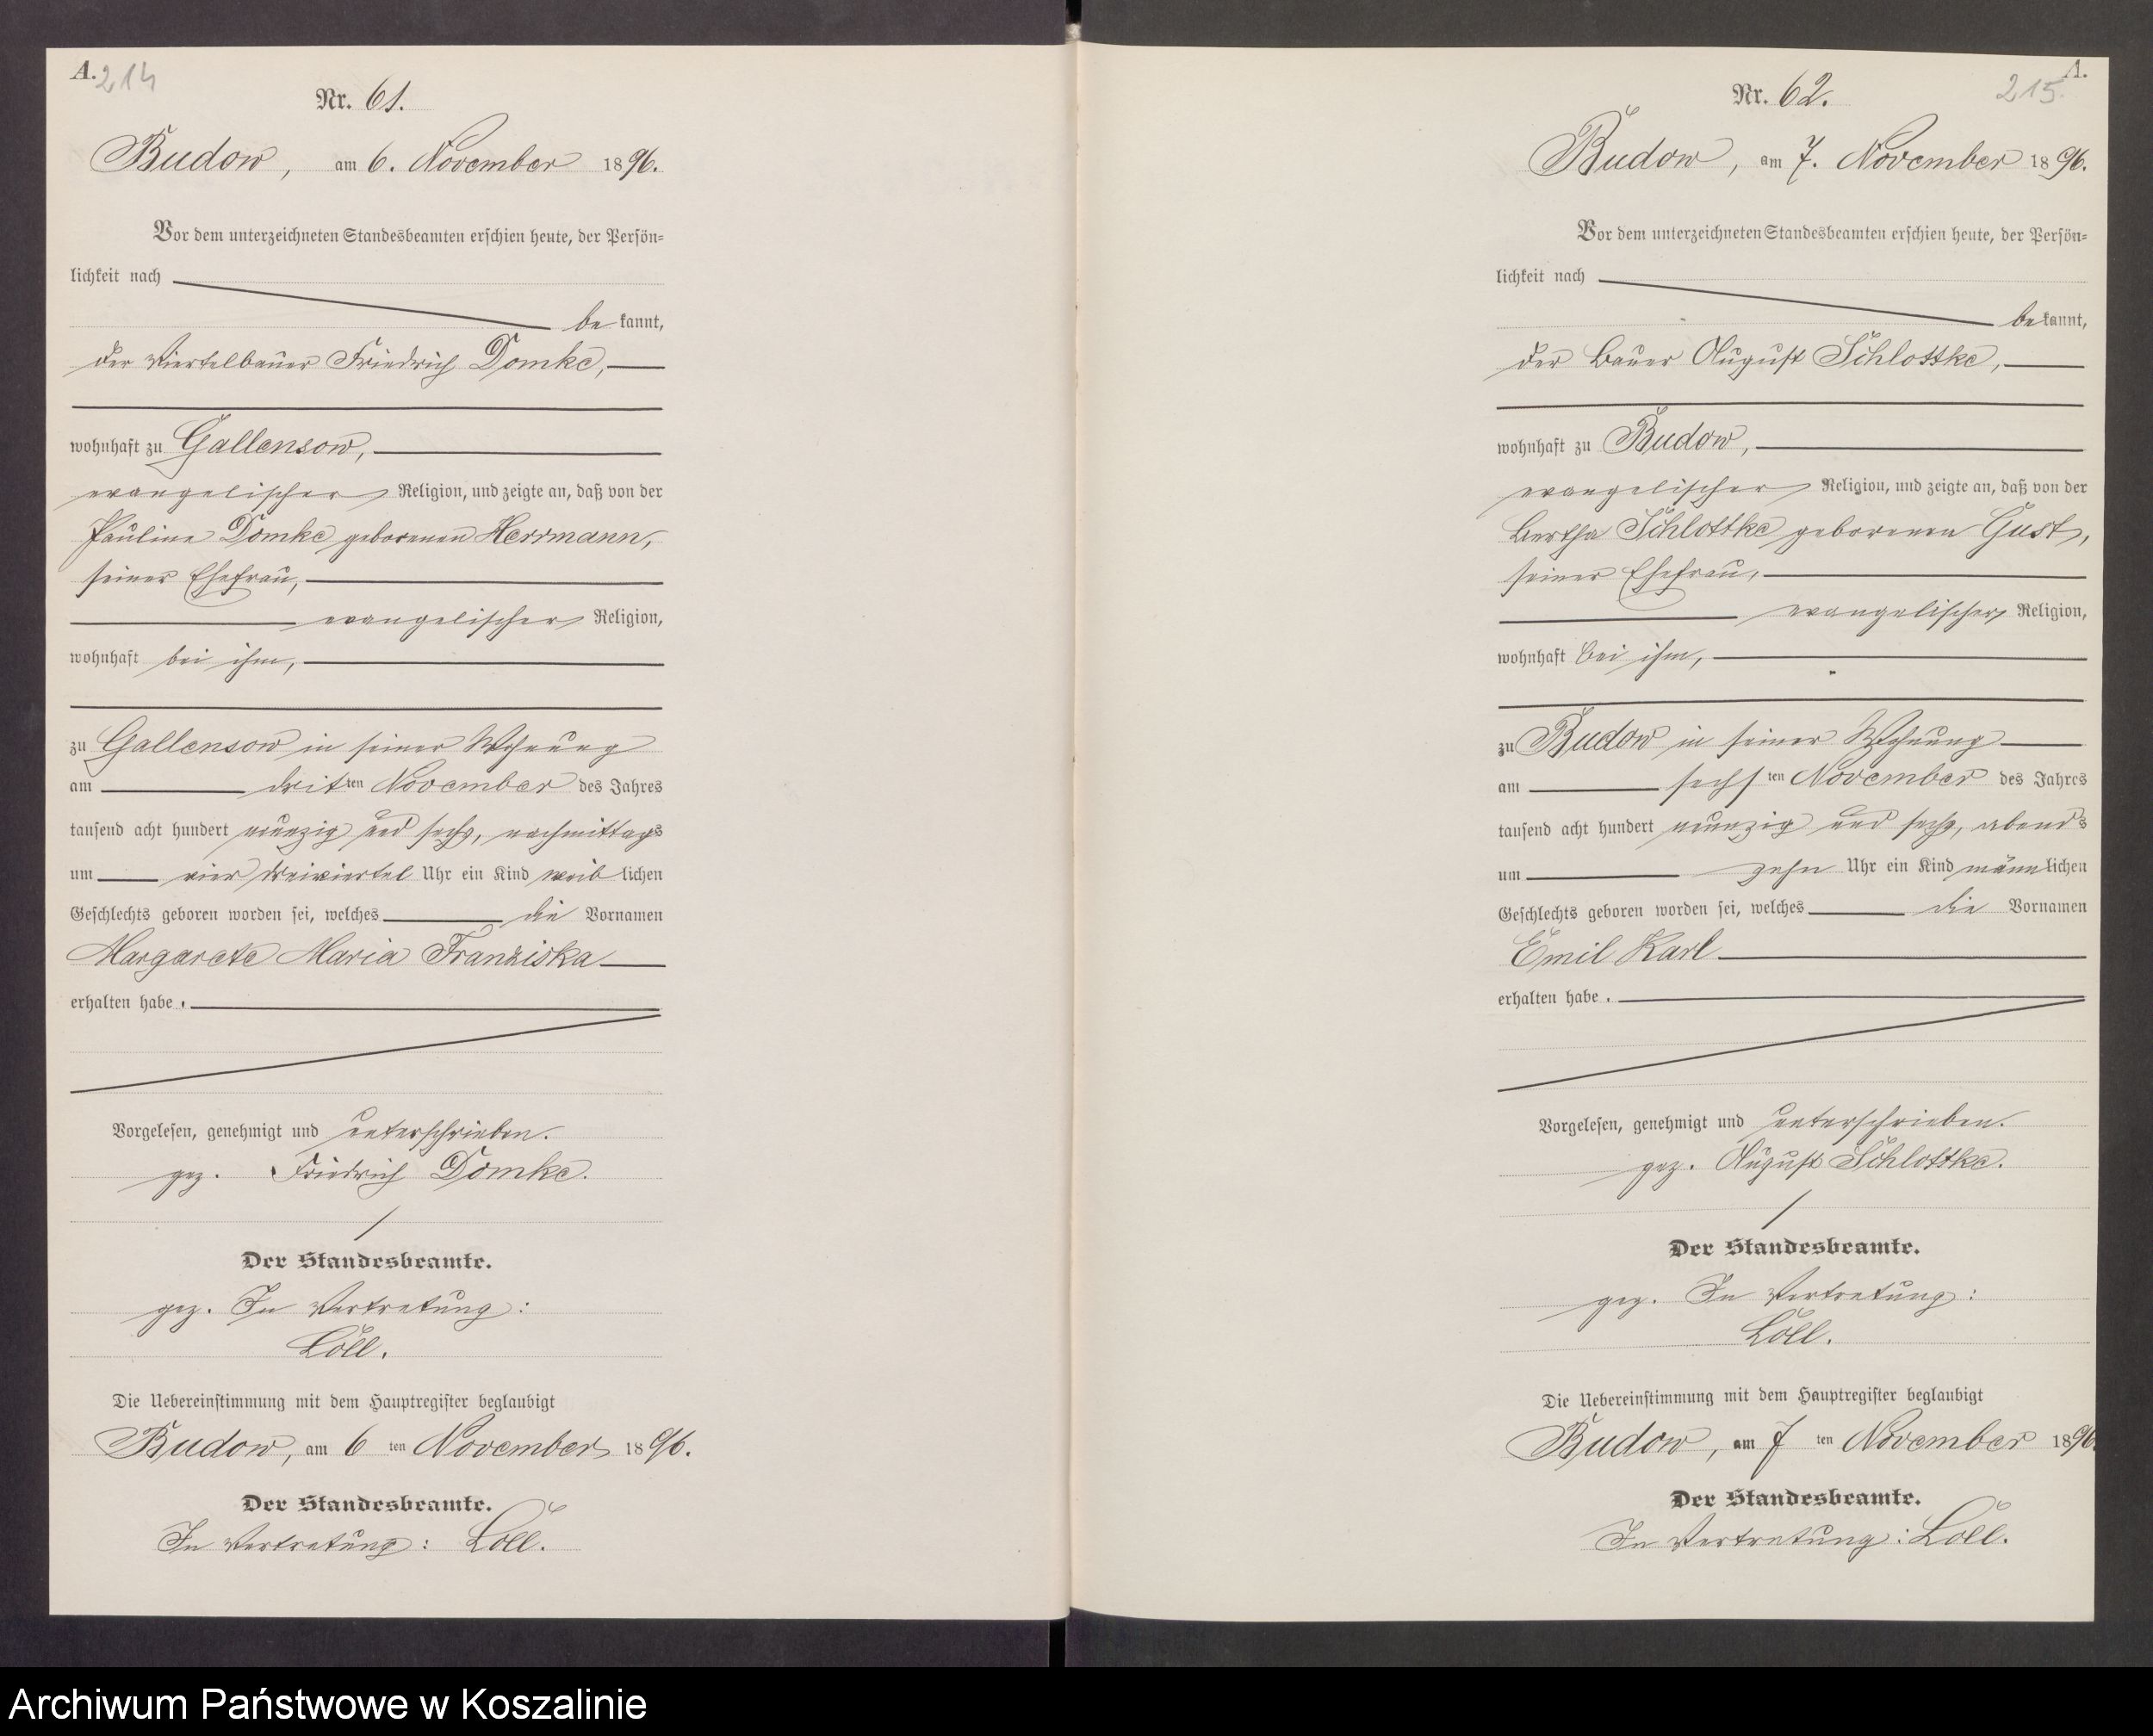 A.
214
Nr. 61.
Budow, am 6. November 1896.
Vor dem unterzeichneten Standesbeamten erschien heute, der Persön-
lichkeit nach
be kannt,
der Viertelbauer Friedrich Domke,
wohnhaft zu Gallensow,
evangelischer Religion, und zeigte an, daß von der
Pauline Domke geborenen Herrmann,
seiner Ehefrau,
evangelischer Religion,
wohnhaft bei ihm,
zu Gallensow in seiner Wohnung
am dritten November des Jahres
tausend acht hundert neunzig und sechs, nachmittags
um vier dreiviertel Uhr ein Kind weiblichen
Geschlechts geboren worden sei, welches die Vornamen
Margarete Maria Franziska
erhalten habe.
Vorgelesen, genehmigt und unterschrieben.
gez. Friedrich Domke.
Der Standesbeamte.
gez. In Vertretung:
Löll.
Die Uebereinstimmung mit dem Hauptregister beglaubigt
Budow, am 6 ten November 1896.
Der Standesbeamte.
In Vertretung: Löll.
A.
215.
Nr. 62.
Budow, am 7. November 1896.
Vor dem unterzeichneten Standesbeamten erschien heute, der Persön-
lichkeit nach
be kannt,
der Bauer August Schlottke,
wohnhaft zu Budow,
evangelischer Religion, und zeigte an, daß von der
Bertha Schlottke geborenen Gust,
seiner Ehefrau,
evangelischer Religion,
wohnhaft bei ihm,
zu Budow in seiner Wohnung
am sechsten November des Jahres
tausend acht hundert neunzig und sechs, abends
um zehn Uhr ein Kind männlichen
Geschlechts geboren worden sei, welches die Vornamen
Emil Karl
erhalten habe.
Vorgelesen, genehmigt und unterschrieben.
gez. August Schlottke.
Der Standesbeamte.
gez. In Vertretung:
Löll.
Die Uebereinstimmung mit dem Hauptregister beglaubigt
Budow, am 7 ten November 1896
Der Standesbeamte.
In Vertretung: Löll.
Archiwum Państwowe w Koszalinie